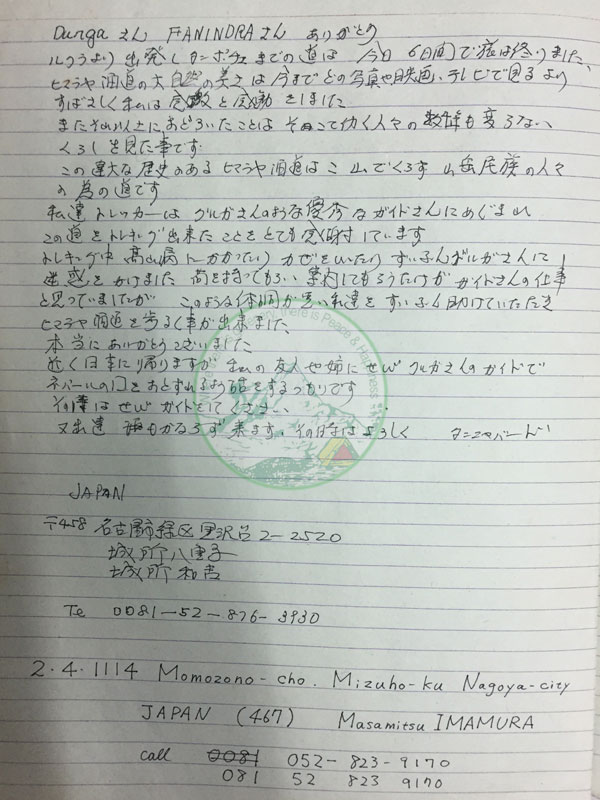 Durgaさん FANINDRAさん ありがとう
ルクラより出発しカンボチェまでの道は 今日 6日間で旅は終りました、
ヒマラヤ 海道の大自然の美さは今までどの写真や映画、テレビで図るより
すばらしく私は感激と感動をしました
またそれ以上におどろいたことは そこで働く人々の 数百年も変らない、
くらしを見た事です
この偉大な歴史のある ヒマラヤ海道はここ山でくらす 山岳民族の人々
の為の道です
私達トレッカーは ドルガさんのような優秀なガイドさんにめぐまれ
この道をトレキング出来たことをとても感謝しています
トレキング中 高山病にかかったり カゼをいたり ずいぶんドルガさんに
迷惑をかけました 荷を持ってもらい 案内してもらうだけがガイドさんの仕事
と思っていましたが このような体調が悪い私達を ずいぶん助けていただき
ヒマラヤ海道を歩るく事が出来ました
本当にありがとうございました
近く日本に帰りますが 私の友人や姉にぜひ ドルガさんのガイドで
ネパールの国をおとずれるよう話をするつもりです
その時はぜひガイドをしてください、
又 私達 も かならず来ます、その時はよろしく ダニエバード
JAPAN
〒458 名古屋市緑区黒沢台2-2520
城所八重子
城所和吉
Te 0081-52-876-3930
2.4.1114 Momozono-cho. Mizuho-ku Nagoya-city
JAPAN (467) Masamitsu IMAMURA
call 0081 052-823-9170
081 52 823 9170
there is Peace & Happiness